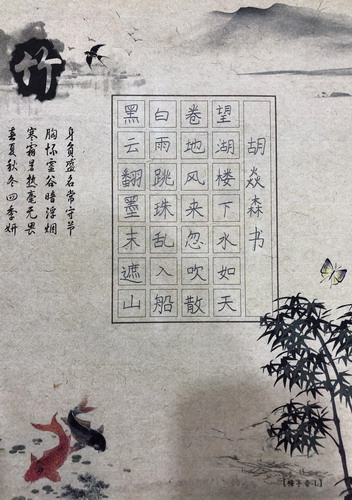 竹
黑云翻墨末遮山
白雨跳珠乱入船
卷地风来忽吹散
望湖楼下水如天
胡焱森书
身負盛名常守节
胸怀虚谷暗浮烟
寒霜暑热毫无畏
春夏秋冬四季妍